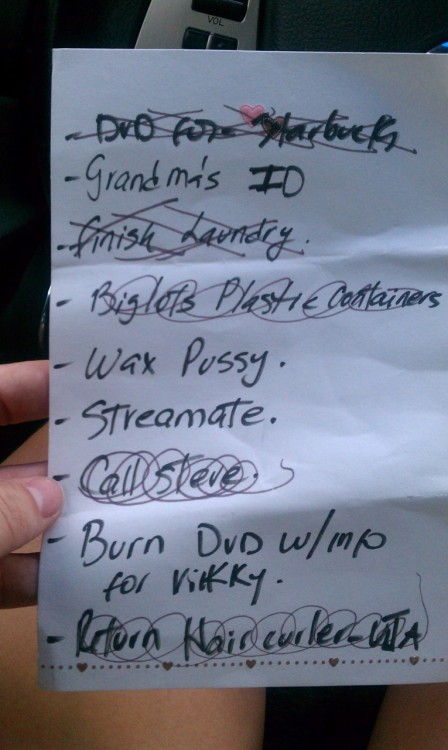 VOL
- DVD for Starbucks
- Grandma's ID
- finish Laundry.
- Biglots Plastic Containers
- Wax Pussy.
- Streamate.
- Call Steve.
- Burn DVD w/mp
for Vikky.
- Return Hair curler-